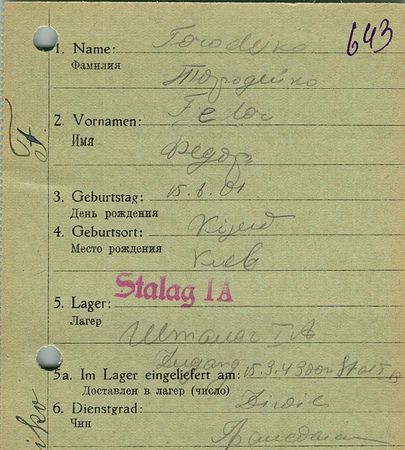 643
1. Name:
Фамилия
2 Vornamen: Fedor
Имя
Федор
3. Geburtstag: 15.6.01
День рождения
4. Geburtsort: Kijew
Место рождения
Киев
Stalag IA
5. Lager:
Лагер
Шталаг IA
5a. Im Lager eingeliefert am: 15.3.43 von Stal I B
Доставлен в лагер (число)
6. Dienstgrad:
Чин